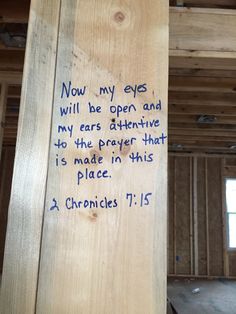 Now my eyes
will be open and
my ears attentive
to the prayer that
is made in this
place.
2 Chronicles 7:15